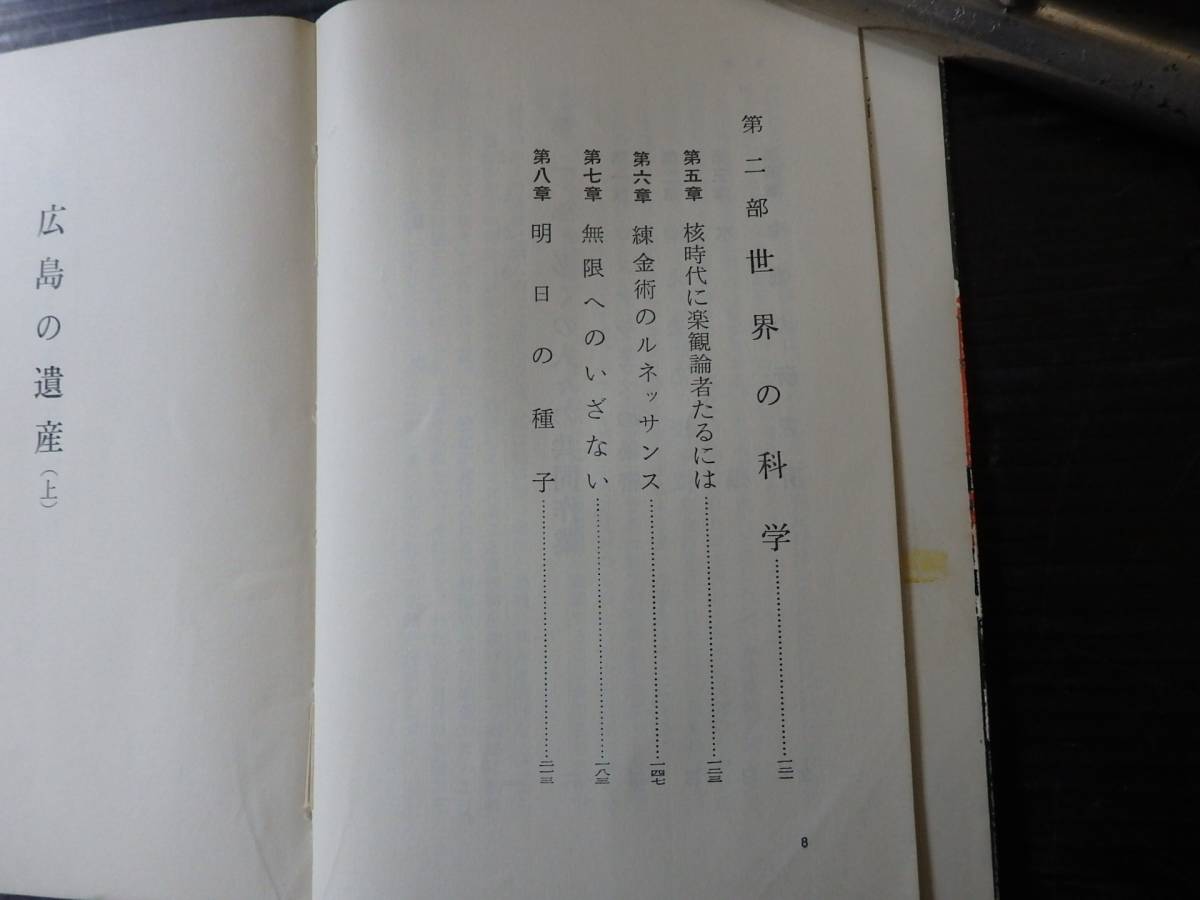 第二部 世界の科学…………一二一
第五章 核時代に楽観論者たるには…………一二三
第六章 練金術のルネッサンス…………一四七
第七章 無限へのいざない…………一八三
第八章 明日の種子…………二一三
8
広島の遺産(上)